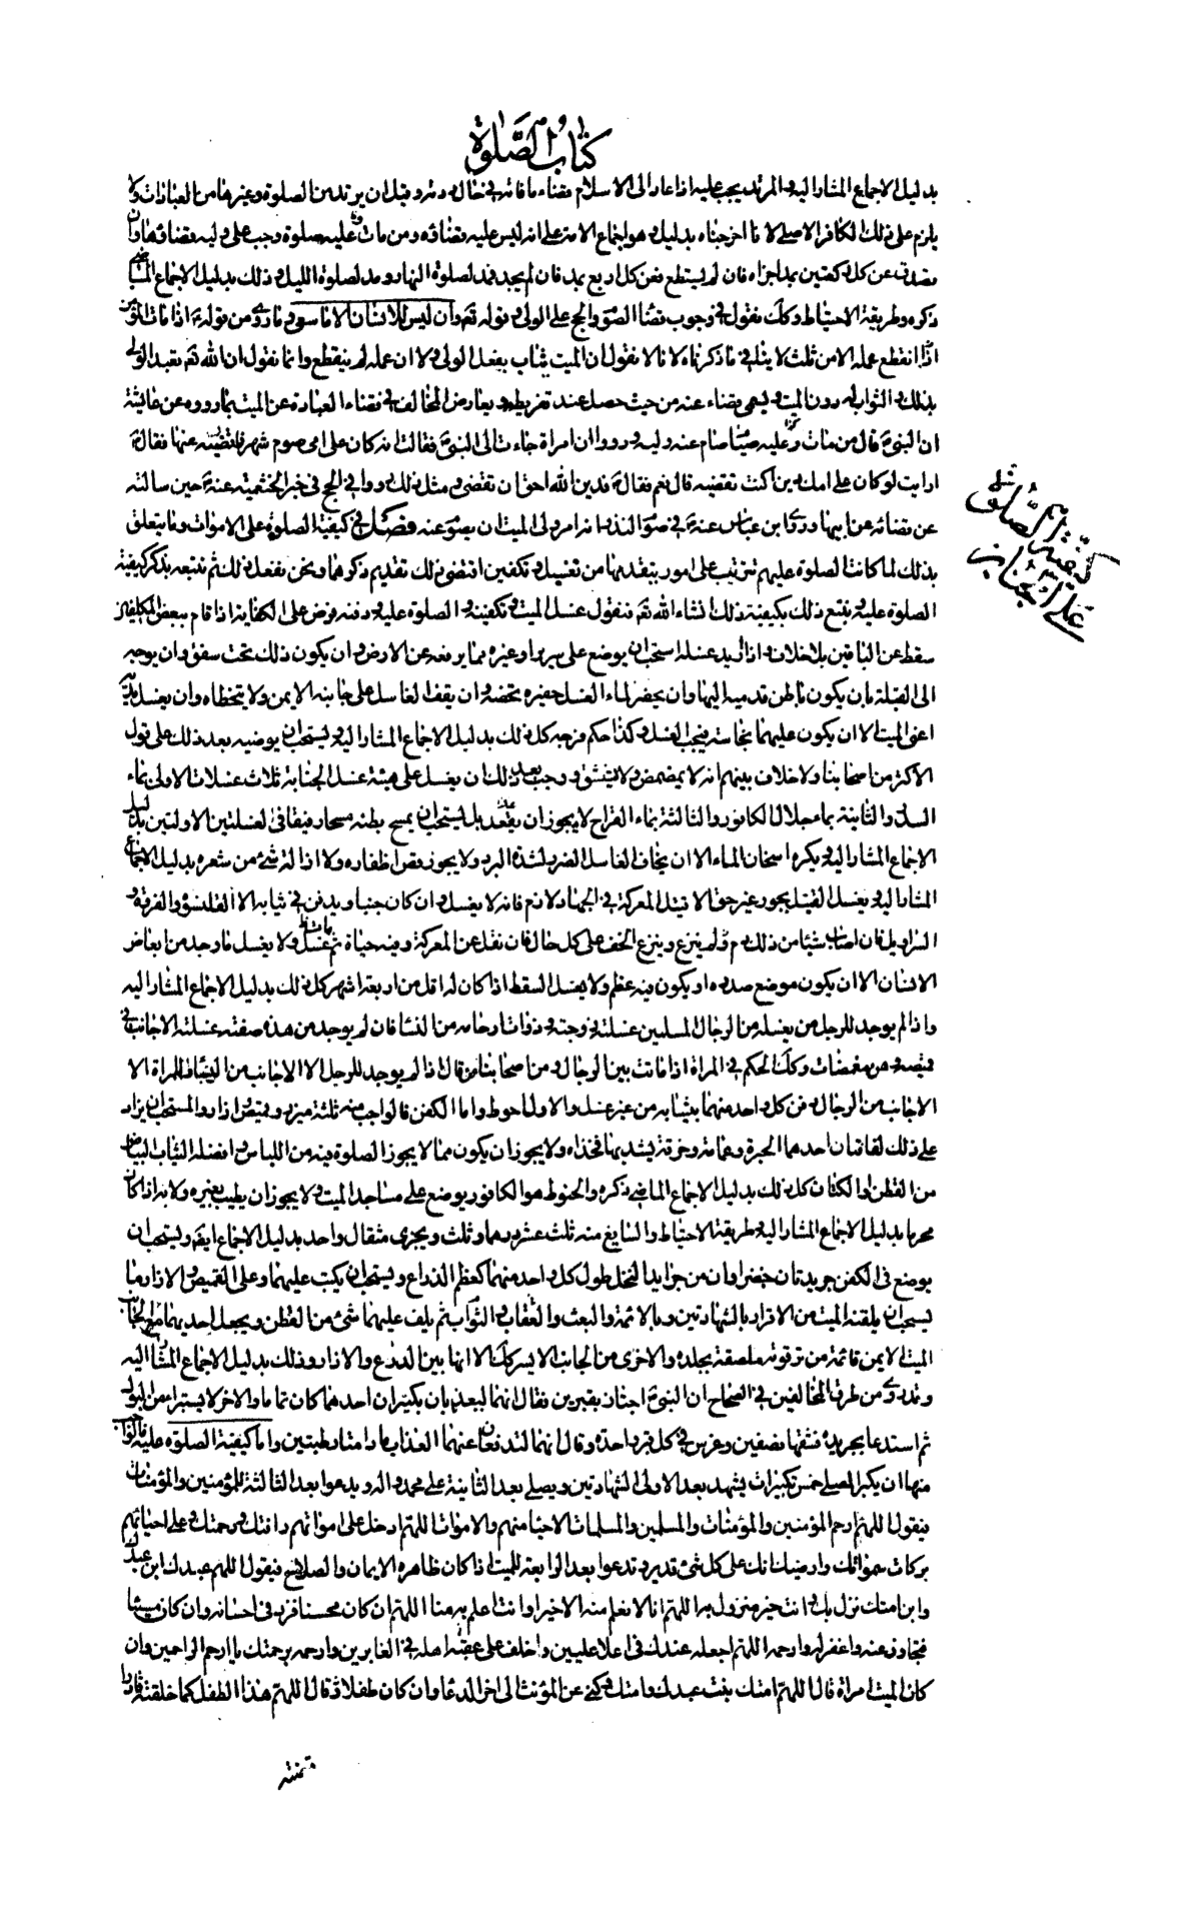 كتاب الصلوة
بدليل الاجماع المشار اليه والمرتد يجب عليه اذا عاد الى الاسلام قضاء ما فاته في حال ردته وقبل ان يرتد من الصلوة وغيرها من العبادات ولا
يلزم على ذلك الكافر الاصلي لانا اخرجناه بدليل وهو اجماع الامة على انه ليس عليه قضاؤه ومن مات وعليه صلوة وجب على وليه قضاؤها وان
تصدق عن كل ركعتين بمد اجزاه فان لم يستطع فعن كل اربع بمد فان لم يجد فمد لصلوة النهار ومد لصلوة الليل وذلك بدليل الاجماع الماضي
ذكره وطريقة الاحتياط وكك نقول في وجوب قضاء الصوم والحج على الولي وقوله تعه وان ليس للانسان الا ما سعى وما روي من قوله ع اذا مات المؤمن
انقطع عمله الا من ثلث لا ينافي ما ذكرناه لانا لا نقول ان الميت يثاب بفعل الولي ولا ان عمله لم ينقطع وانما نقول ان الله تعه تعبد الولي
بذلك والثواب له دون الميت ويسمى قضاء عنه من حيث حصل عند تفريطه ويعارض المخالف في قضاء العبادة عن الميت بما رووه عن عايشة
ان النبي ص قال من مات وعليه صيام صام عنه وليه ورووا ان امراة جاءت الى النبي ص فقالت انه كان على امي صوم شهر فاقضيه عنها فقال ص
ارايت لو كان على امك دين اكنت تقضيه قال نعم فقال ص فدين الله احق ان تقضى ومثل ذلك رووا في الحج في خبر الخثعمية عنه ص حين سالته
عن قضائه عن ابيها وروي ابن عباس عنه ص في صوم النذر انه امر ولي الميت ان يصوم عنه فصل في كيفية الصلوة على الاموات وما يتعلق
بذلك لما كانت الصلوة عليهم تترتب على امور يتقدمها من تغسيل وتكفين اقتضى ذلك تقديم ذكرهما ونحن نفعل ذلك ثم نتبعه بذكر كيفية
الصلوة عليه ونتبع ذلك بكيفية ذلك انشاء الله تعه فنقول غسل الميت وتكفينه والصلوة عليه ودفنه فرض على الكفاية اذا قام ببعض المكلفين
سقط عن الباقين بلا خلاف واذا اريد غسله استحب ان يوضع على سرير او غيره مما يرفعه عن الارض وان يكون ذلك تحت سقف وان يوجه
الى القبلة بان يكون باطن قدميه اليها وان يحفر لماء الغسل حفيرة تخصه وان يقف الغاسل على جانبه الايمن ولا يتخطاه وان يغسل يديه
اعني الميت الا ان يكون عليهما نجاسة فيجب الغسل وكذا حكم فرجه كل ذلك بدليل الاجماع المشار اليه ويستحب ان يوضيه بعد ذلك على قول
الاكثر من اصحابنا ولا خلاف بينهم انه لا يمضمض ولا يستنشق ووجب بعد ذلك ان يغسل على هيئة غسل الجنابة ثلاث غسلات الاولى بماء
السدر والثانية بماء جلال الكافور والثالثة بماء القراح لا يجوز ان يقعد بل يستحب ان يمسح بطنه مسحا رفيقا في الغسلتين الاولتين بدليل
الاجماع المشار اليه ويكره اسخان الماء الا ان يخاف الغاسل الضرر لشدة البرد ولا يجوز قص اظفاره ولا ازالة شئ من شعره بدليل الاجماع
المشار اليه ويغسل القتيل بجور غير حق الا قتيل المعركة في الجهاد لازم فانه لا يغسل وان كان جنبا ويدفن في ثيابه الا القلنسوة والفروة و
السراويل فان اصاب شيئا من ذلك دم لم ينزع وينزع الخف على كل حال فان نقل عن المعركة وفيه حياة ثم مات غسل ولا يغسل ما وجد من ابعاض
الانسان الا ان يكون موضع صدره او يكون فيه عظم ولا يغسل السقط اذا كان له اقل من اربعة اشهر كل ذلك بدليل الاجماع المشار اليه
واذا لم يوجد للرجل من يغسله من الرجال المسلمين غسلته زوجته و ذوات ارحامه من النساء فان لم يوجد من هذه صفته غسلته الاجانب في
قميصه وهن مغمضات وكك الحكم في المراة اذا ماتت بين الرجال ومن اصحابنا من قال اذا لم يوجد للرجل الا الاجانب من النساء وللمراة الا
الاجانب من الرجال دفن كل واحد منهما بثيابه من غير غسل والاول احوط واما الكفن فالواجب منه ثلثة ميزر وقميص وازار والمستحب ان يزاد
على ذلك لفافتان احدهما الحبرة وعمامة وخرقة يشد بها فخذاه ولا يجوز ان يكون مما لا يجوز الصلوة فيه من اللباس وافضله الثياب البياض
من القطن او الكتان كل ذلك بدليل الاجماع الماضي ذكره والحنوط هو الكافور يوضع على مساجد الميت ولا يجوز ان يطيب بغيره ولا به اذا كان
محرما بدليل الاجماع المشار اليه وطريقة الاحتياط والسايغ منه ثلث عشر درهما وثلث ويجزي مثقال واحد بدليل الاجماع ايضه ويستحب ان
يوضع في الكفن جريدتان خضراوان من جرايد النخل طول كل واحد منهما كعظم الذراع ويستحب ان يكتب عليهما وعلى القميص والازار ما
يستحب ان يلقنه الميت من الاقرار بالشهادتين وبالائمة والبعث والعقاب والثواب ثم يلف عليهما شئ من القطن ويجعل احديهما مع جانب
الميت الايمن قائمة من ترقوته ملصقة بجلده والاخرى من الجانب الايسر كك الا انها بين الدرع والازار وذلك بدليل الاجماع المشار اليه
وقد روي من طرق المخالفين في الصحاح ان النبي ص اجتاز بقبرين فقال انهما ليعذبان بكبير ان احدهما كان نماما والاخر لا يستبرا من البول
ثم استدعا بجريدة فشقها نصفين وغرس في كل قبر واحدة وقال انهما لتدفعان عنهما العذاب ما دامتا رطبتين واما كيفية الصلوة عليه فالواجب
منها ان يكبر المصلي خمس تكبيرات يشهد بعد الاولى الشهادتين ويصلي بعد الثانية على محمد واله ويدعوا بعد الثالثة للمؤمنين والمؤمنات
فيقول اللهم ارحم المؤمنين والمؤمنات والمسلمين والمسلمات الاحياء منهم والاموات اللهم ادخل على امواتهم رافتك ورحمتك وعلى احيائهم
بركات سمواتك وارضك انك على كل شئ قدير ويدعوا بعد الرابعة للميت اذا كان ظاهره الايمان والصلاح فيقول اللهم عبدك ابن عبدك
وابن امتك نزل بك وانت خير منزول به اللهم انا لا نعلم منه الا خيرا وانت اعلم به منا اللهم ان كان محسنا فزد في احسانه وان كان مسيئا
فتجاوز عنه واغفر له وارحمه اللهم اجعله عندك في اعلا عليين واخلف على عقبه اهله في الغابرين وارحمه برحمتك يا ارحم الراحمين وان
كان الميت امراة قال اللهم امتك بنت عبدك وامتك وكني عن المؤنث الى اخر الدعاء وان كان طفلا قال اللهم هذا الطفل كما خلقته قادرا
كيفية الصلوة
على الجنايز